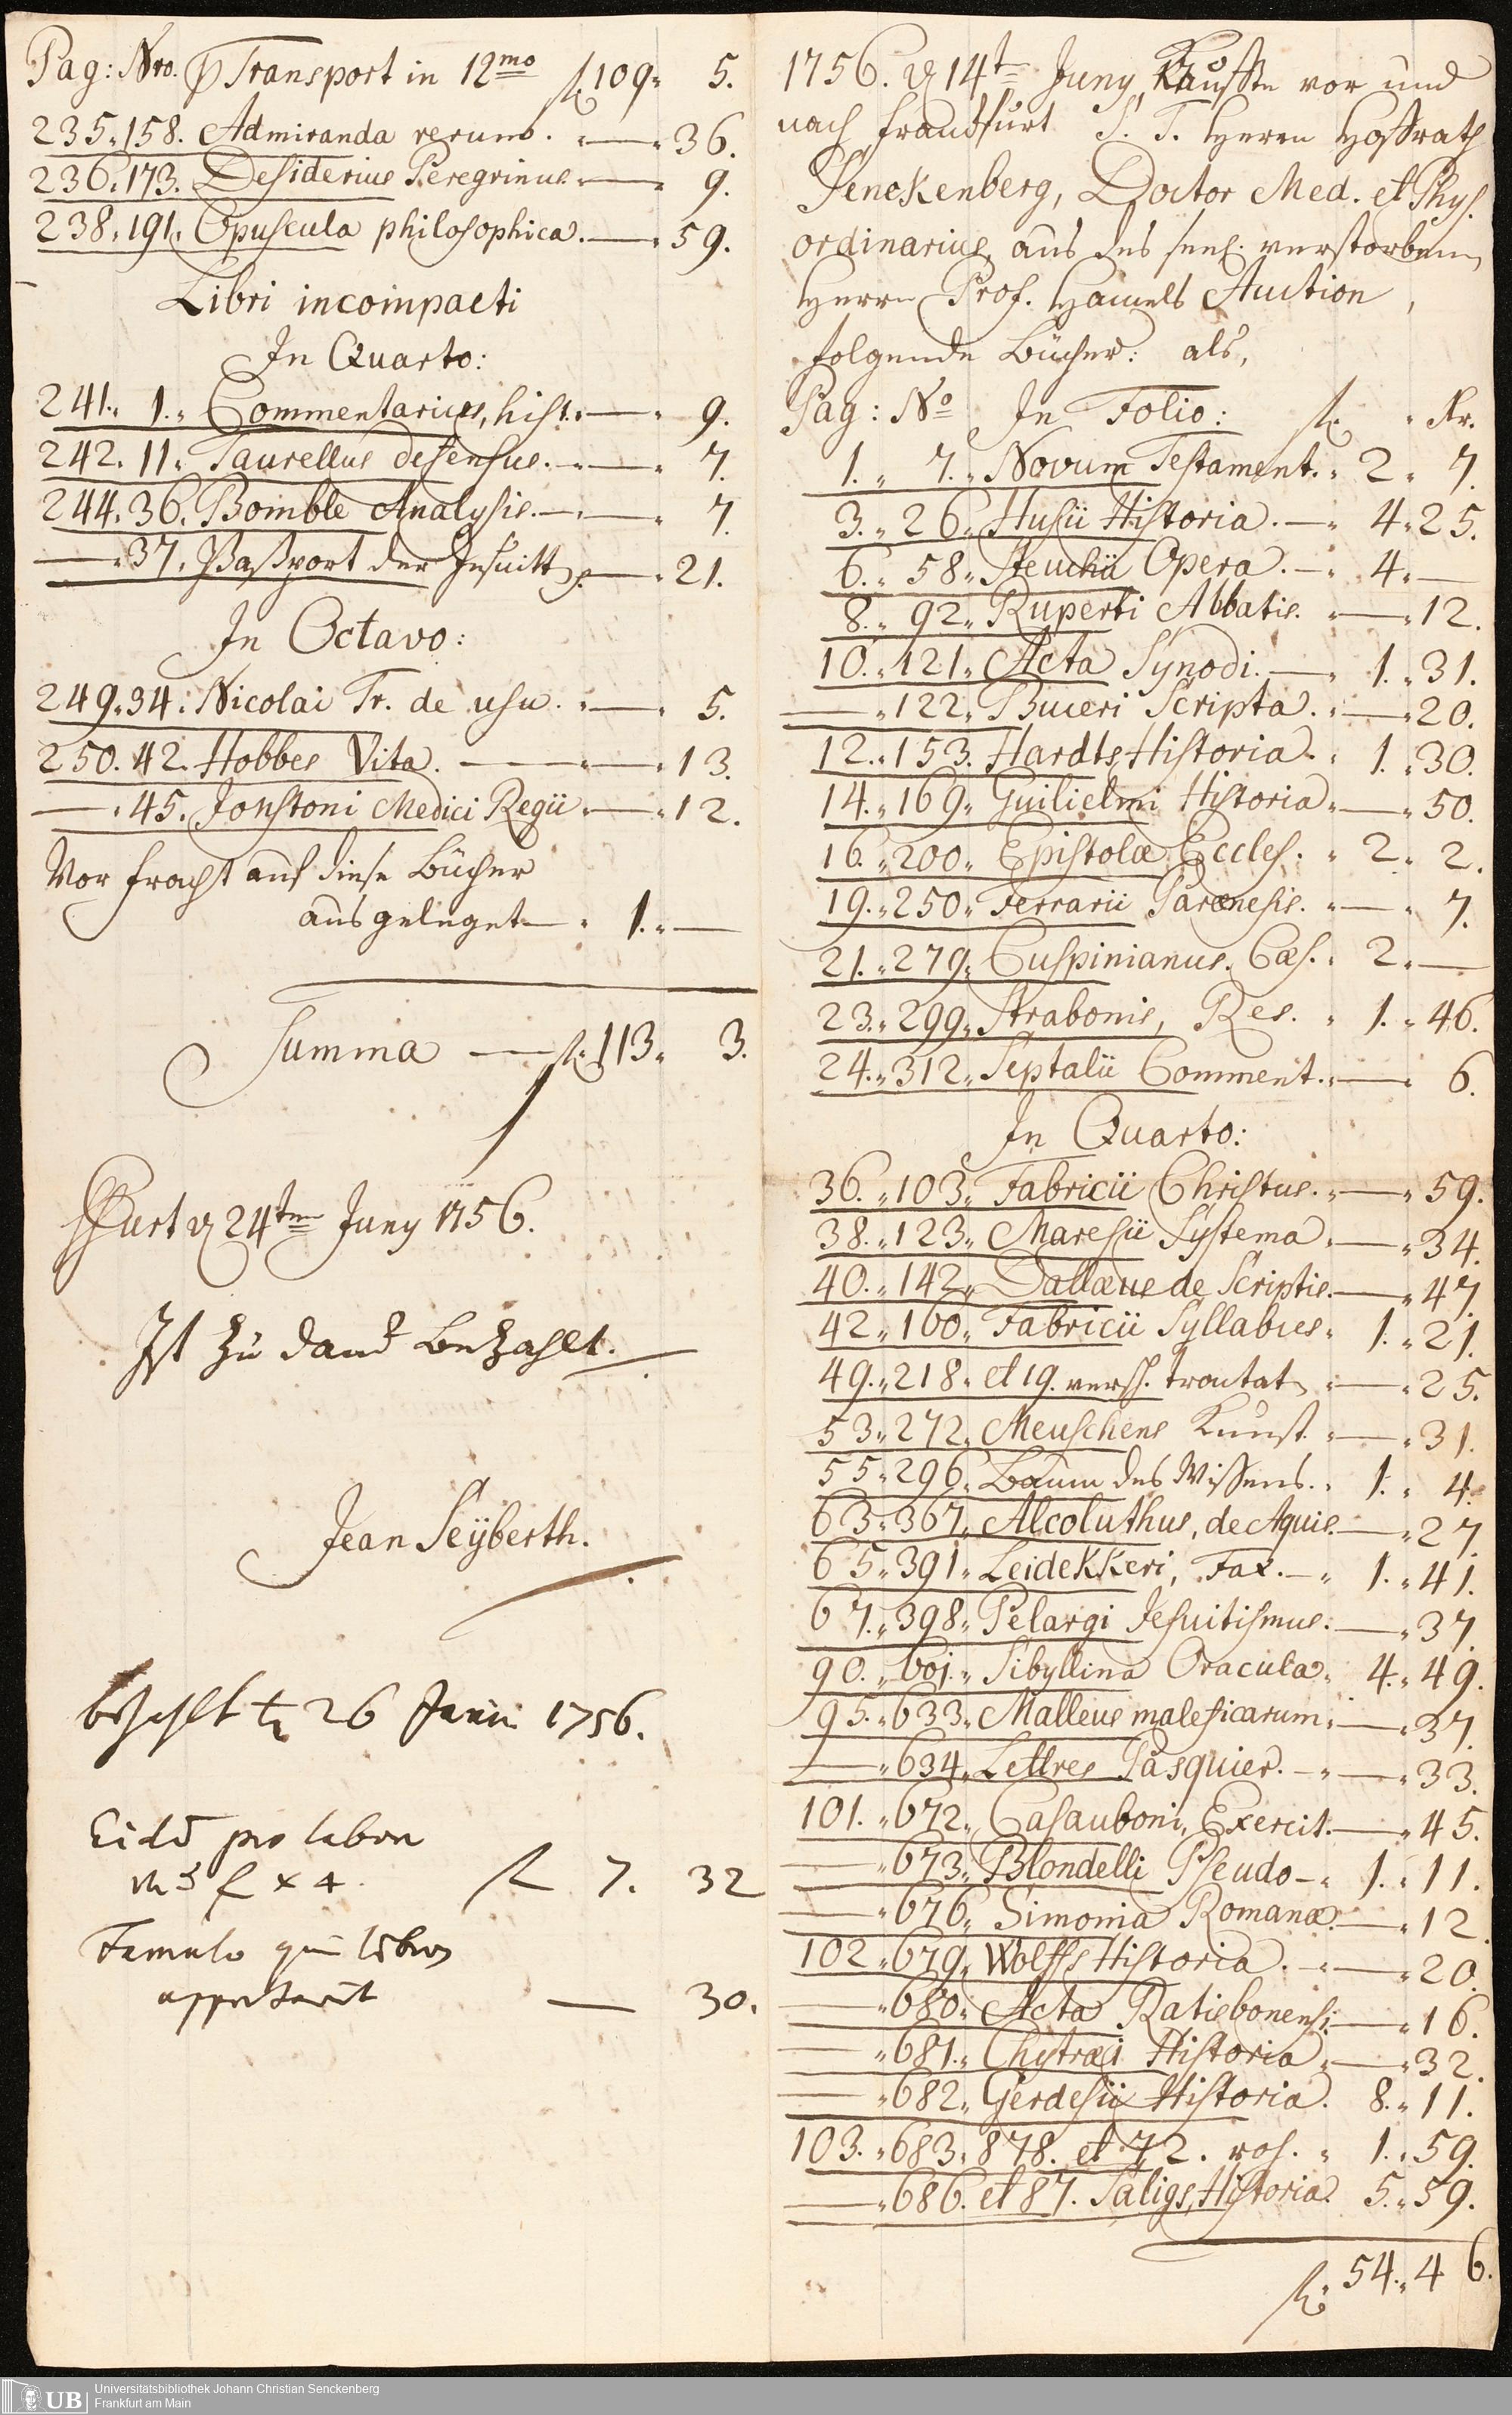 Pag: Nro. Transport in 12mo fl 109. 5.
235. 158. Admiranda rerum. — 36.
236. 173. Desiderius Peregrinus. — 9.
238. 191. Opuscula philosophica. — 59.
Libri incompacti
In Quarto:
241. 1. Commentarius, hist. — 9.
242. 11. Taurellus defensus. — 7.
244. 36. Bomble Analysis. — 7.
— 37. Paßport der Jesuitt. — 21.
In Octavo:
249. 34. Nicolai Tr. de usu. — 5.
250. 42. Hobbes Vita. — 13.
— 45. Jonstoni Medici Regii — 12.
Vor fracht auf diese Bücher
ausgeleget — 1. —
Summa — fl. 113. 3.
Ffurt d 24ten Juny 1756.
Ist zu danck bezahlt.
Jean Seÿberth.
bezahlt d 26 Junii 1756.
Eid pro labore
fl 7. 32
Famulo qui libros
apportavit — 30.
1756. d 14t Juny, Kauffte vor und
nach franckfurt S. T. Herrn Hoffrath
Senckenberg, Doctor Med. et Phys.
ordinarius, aus des seel. verstorbenen
Herrn Prof. Hamels Auction,
folgende Bücher: als,
Pag: No In Folio: fl. Kr.
1. 7. Novum Testament. 2. 7.
3. 26. Husii Historia. — 4. 25.
6. 58. Steuchii Opera. — 4. —
8. 92. Ruperti Abbatis. — 12.
10. 121. Acta Synodi. — 1. 31.
— 122. Buceri Scripta. — 20.
12. 153. Hardts Historia. 1. 30.
14. 169. Guilielmi Historia — 50.
16. 200. Epistolæ Eccles. 2. 2.
19. 250. Ferrarii Parænesis. — 7.
21. 279. Cuspinianus. Cæs. 2. —
23. 299. Strabonis, Res. 1. 46.
24. 312. Septalii Comment. — 6.
In Quarto:
36. 103. Fabricii Christus. — 59.
38. 123. Maresii Systema — 34.
40. 142. Dallæus de Scriptis. — 47.
42. 160. Fabricii Syllabus. 1. 21.
49. 218. et 19. versch. tractat — 25.
53. 272. Meuschens Kunst. — 31.
55. 296. Baum des Wissens. 1. 4.
63. 367. Alcoluthus, de Aquis. — 27.
65. 391. Leidekkeri, Fax. — 1. 41.
67. 398. Pelargi Jesuitismus. — 37.
90. 601. Sibyllina Oracula. 4. 49.
95. 633. Malleus maleficarum. — 37.
— 634. Lettres Pasquier. — 33.
101. 672. Casauboni, Exercit. — 45.
— 673. Blondelli Pseudo — 1. 11.
— 676. Simonia Romana. — 12.
102. 679. Wolffs Historia. — 20.
— 680. Acta Ratisbonensi. — 16.
— 681. Chytræi Historia. — 32.
— 682. Gerdesii Historia. 8. 11.
103. 683. 878. et 72. vol. 1. 59.
— 686. et 87. Saligs, Historia. 5. 59.
fl. 54. 46.
UB Universitätsbibliothek Johann Christian Senckenberg
Frankfurt am Main